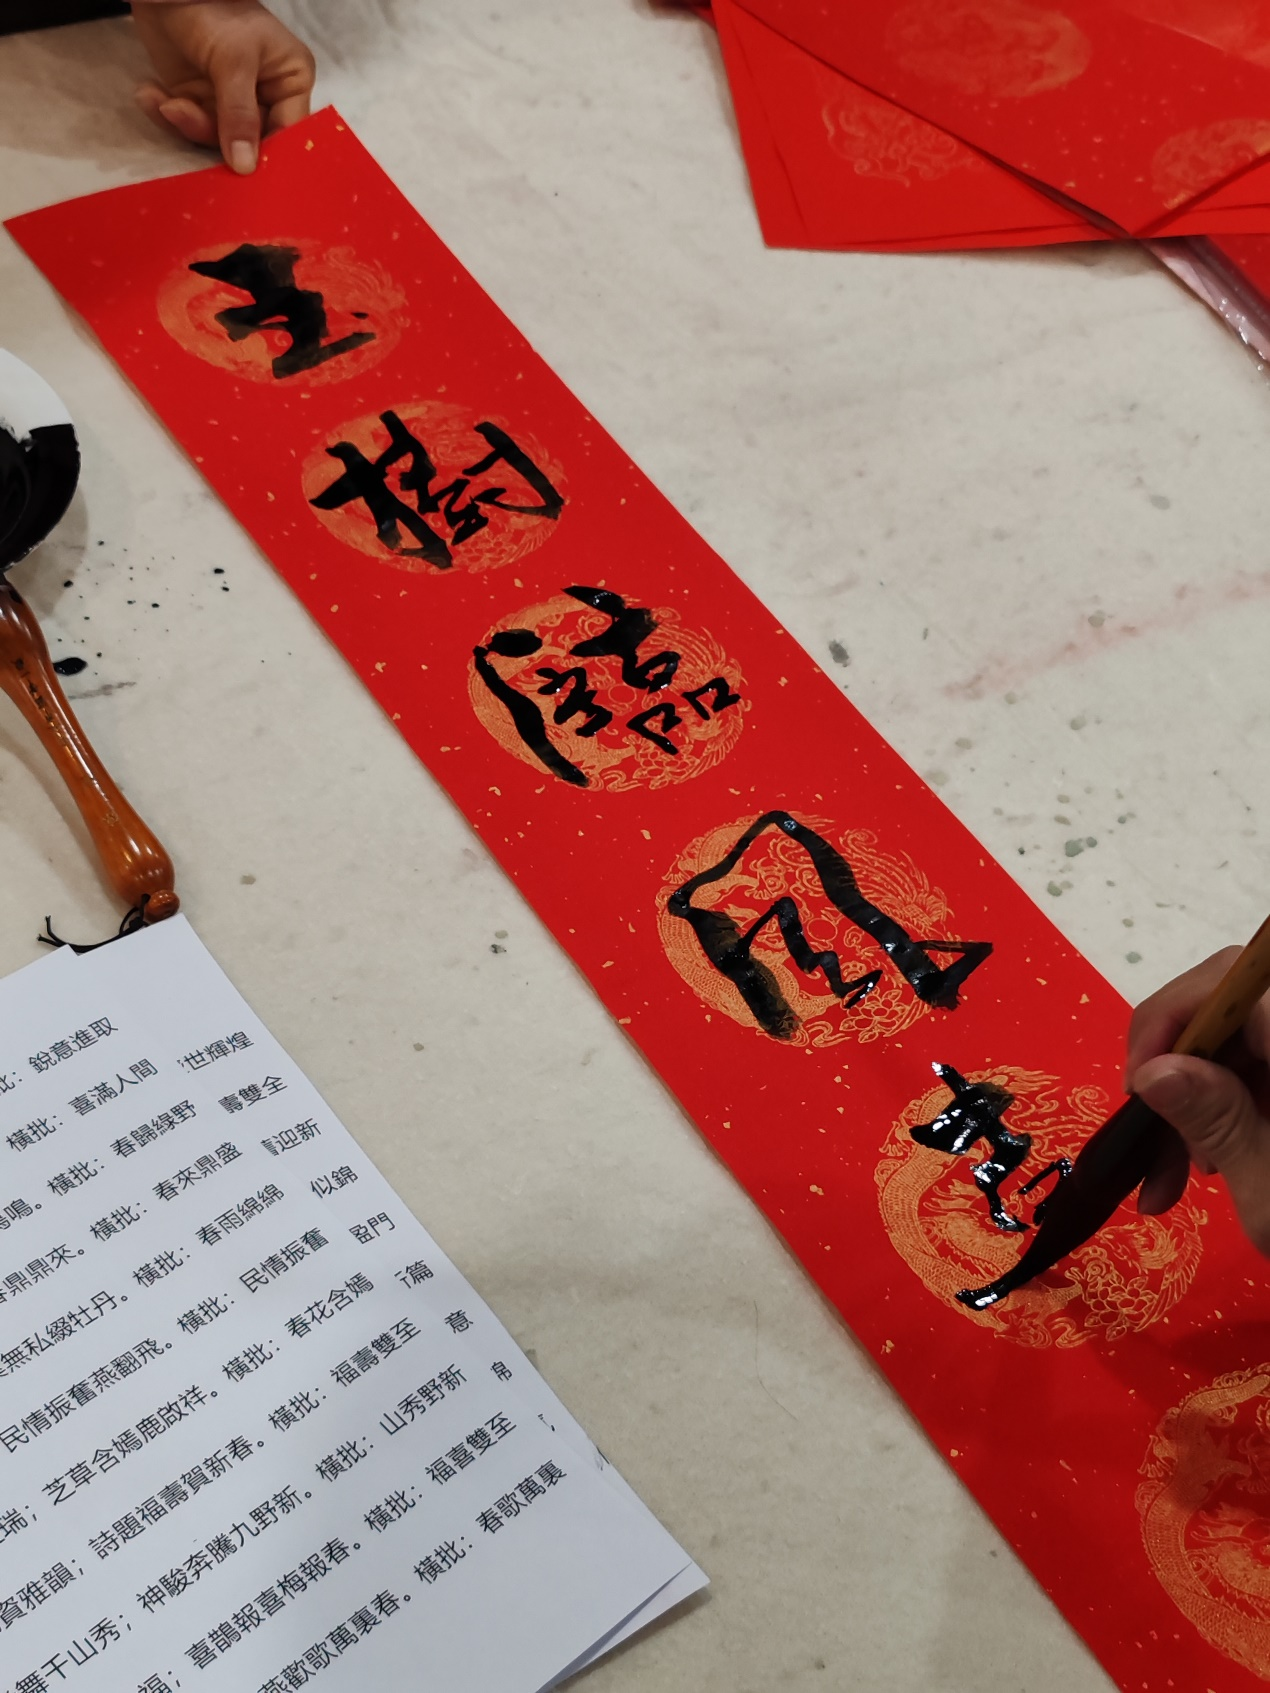 玉樹臨風
銳意進取
橫批：喜滿人間
世輝煌
鳴。橫批：春歸綠野
壽雙全
鼎鼎來。橫批：春來鼎盛
迎新
無私綴牡丹。橫批：春雨綿綿
似錦
民情振奮燕翻飛。橫批：民情振奮
盈門
瑞；芝草含嫣鹿啟祥。橫批：春花含嫣
篇
資雅韻；詩題福壽賀新春。橫批：福壽雙至
意
舞千山秀；神駿奔騰九野新。橫批：山秀野新
帛
福；喜鵲報喜梅報春。橫批：福喜雙至
燕歡歌萬裏春。橫批：春歌萬裏